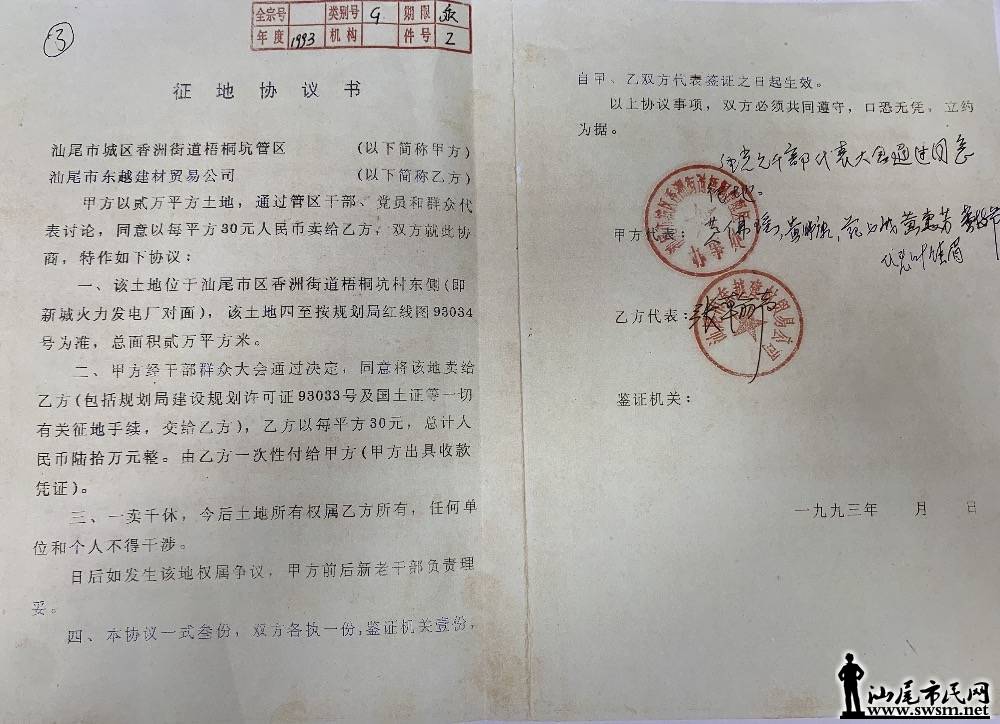 ③
全宗号 类别号 9 期限
年度 1993 机构 件号 2
征地协议书
汕尾市城区香洲街道梧桐坑管区 (以下简称甲方)
汕尾市东越建材贸易公司 (以下简称乙方)
甲方以贰万平方土地，通过管区干部、党员和群众代
表讨论，同意以每平方30元人民币卖给乙方，双方就此协
商，特作如下协议：
一、该土地位于汕尾市区香洲街道梧桐坑村东侧(即
新城火力发电厂对面)，该土地四至按规划局红线图93034
号为准，总面积贰万平方米。
二、甲方经干部群众大会通过决定，同意将该地卖给
乙方(包括规划局建设规划许可证93033号及国土证等一切
有关征地手续，交给乙方)，乙方以每平方30元，总计人
民币陆拾万元整。由乙方一次性付给甲方(甲方出具收款
凭证)。
三、一卖千休，今后土地所有权属乙方所有，任何单
位和个人不得干涉。
日后如发生该地权属争议，甲方前后新老干部负责理
妥。
四、本协议一式叁份，双方各执一份，鉴证机关壹份，
自甲、乙双方代表鉴证之日起生效。
以上协议事项，双方必须共同遵守，口恐无凭，立约
为据。
干部代表大会通过同意
甲方代表：
乙方代表：
鉴证机关：
一九九三年 月 日
汕尾市民网
www.swsm.net